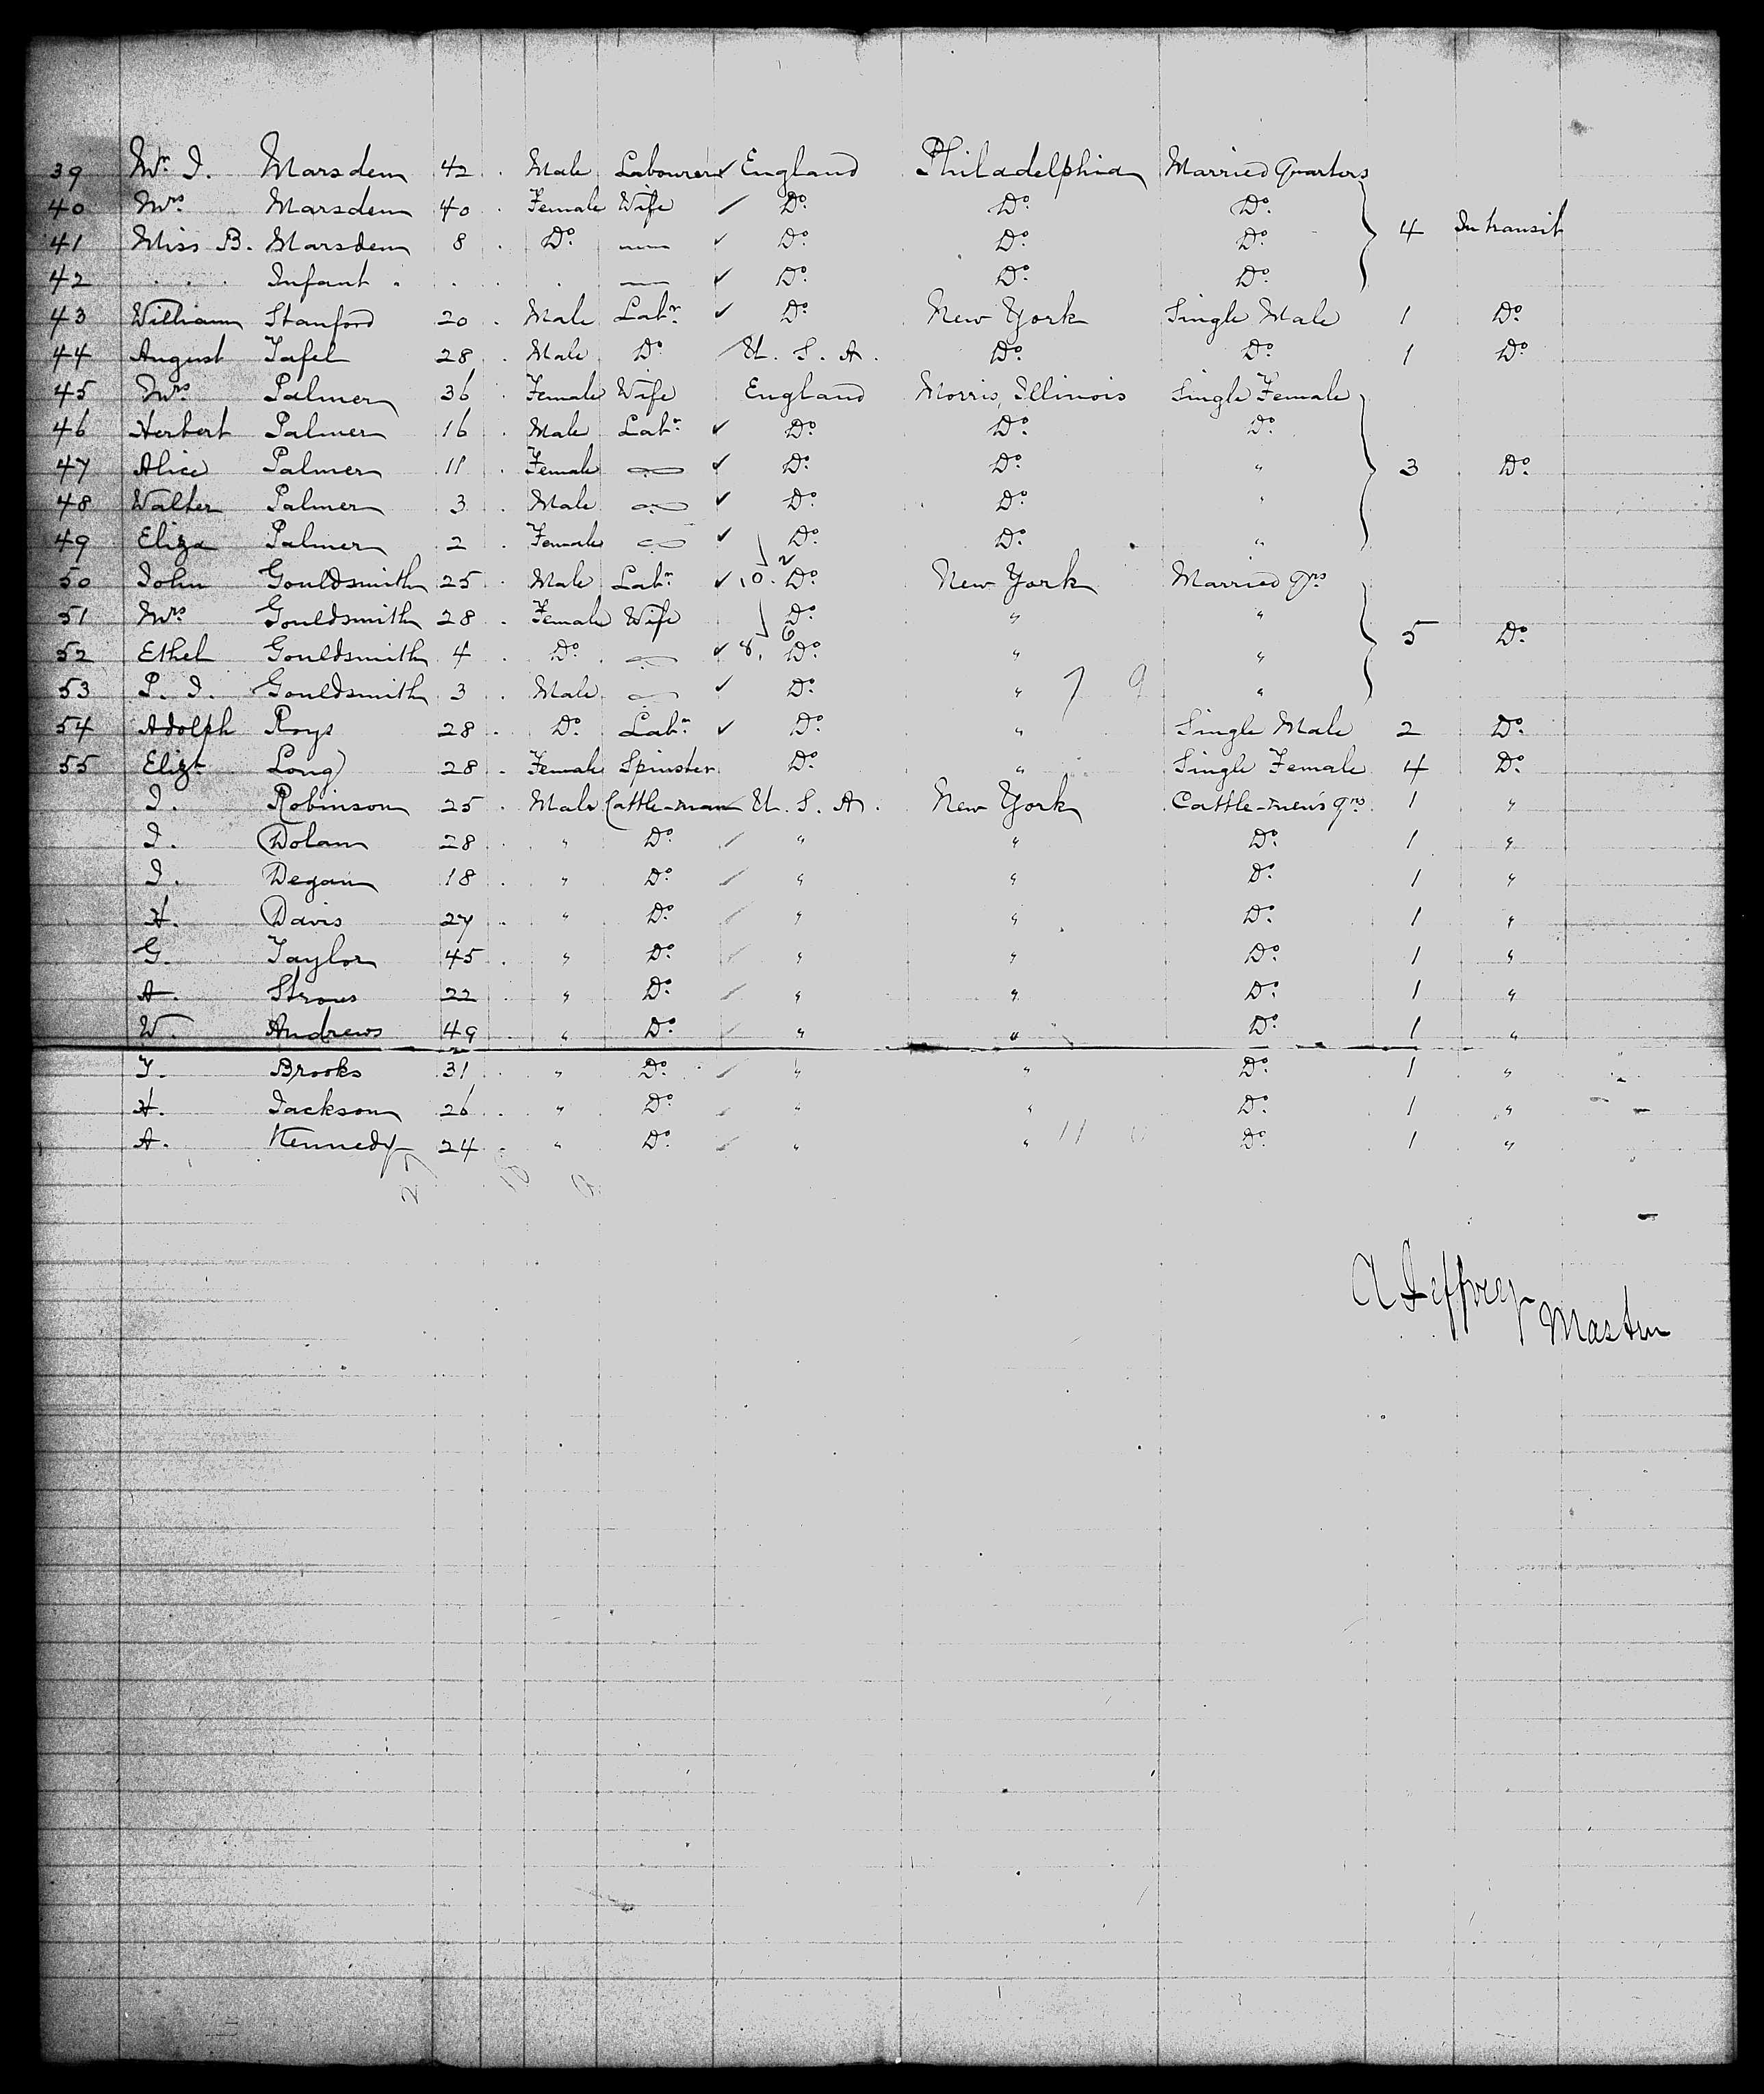 39 Mr. I. Marsden 42 Male Labourer England Philadelphia Married Quarters
40 Mrs Marsden 40 Female Wife Do. Do. Do.
41 Miss B. Marsden 8 Do. Do. Do. Do. 4 In transit
42 Infant Do. Do. Do.
43 William Stanford 20 Male Labr. Do. New York Single Male 1 Do.
44 August Tafel 28 Male Do. U. S. A. Do. Do. 1 Do.
45 Mrs Palmer 36 Female Wife England Morris, Illinois Single Female
46 Herbert Palmer 16 Male Labr. Do. Do. Do.
47 Alice Palmer 11 Female Do. Do. " 3 Do.
48 Walter Palmer 3 Male Do. Do. "
49 Eliza Palmer 2 Female Do. Do. "
50 John Gouldsmith 25 Male Labr. 10. 2 Do. New York Married Qrs
51 Mrs Gouldsmith 28 Female Wife Do. " "
52 Ethel Gouldsmith 4 Do. 8. 6 Do. " " 5 Do.
53 P. I. Gouldsmith 3 Male Do. " 7 9 "
54 Adolph Roys 28 Do. Labr. Do. " Single Male 2 Do.
55 Elizt. Long 28 Female Spinster Do. " Single Female 4 Do.
I. Robinson 25 Male Cattle-man U. S. A. New York Cattle-men's qrs. 1 "
I. Dolan 28 " Do. " " Do. 1 "
I. Degan 18 " Do. " " Do. 1 "
H. Davis 27 " Do. " " Do. 1 "
G. Taylor 45 " Do. " " Do. 1 "
A. Strous 22 " Do. " " Do. 1 "
W. Andrews 49 " Do. " " Do. 1 "
T. Brooks 31 " Do. " " Do. 1 "
H. Jackson 26 " Do. " " Do. 1 "
A. Kennedy 24 " Do. " " 11 Do. 1 "
27 18 9
A Jeffrey
Master